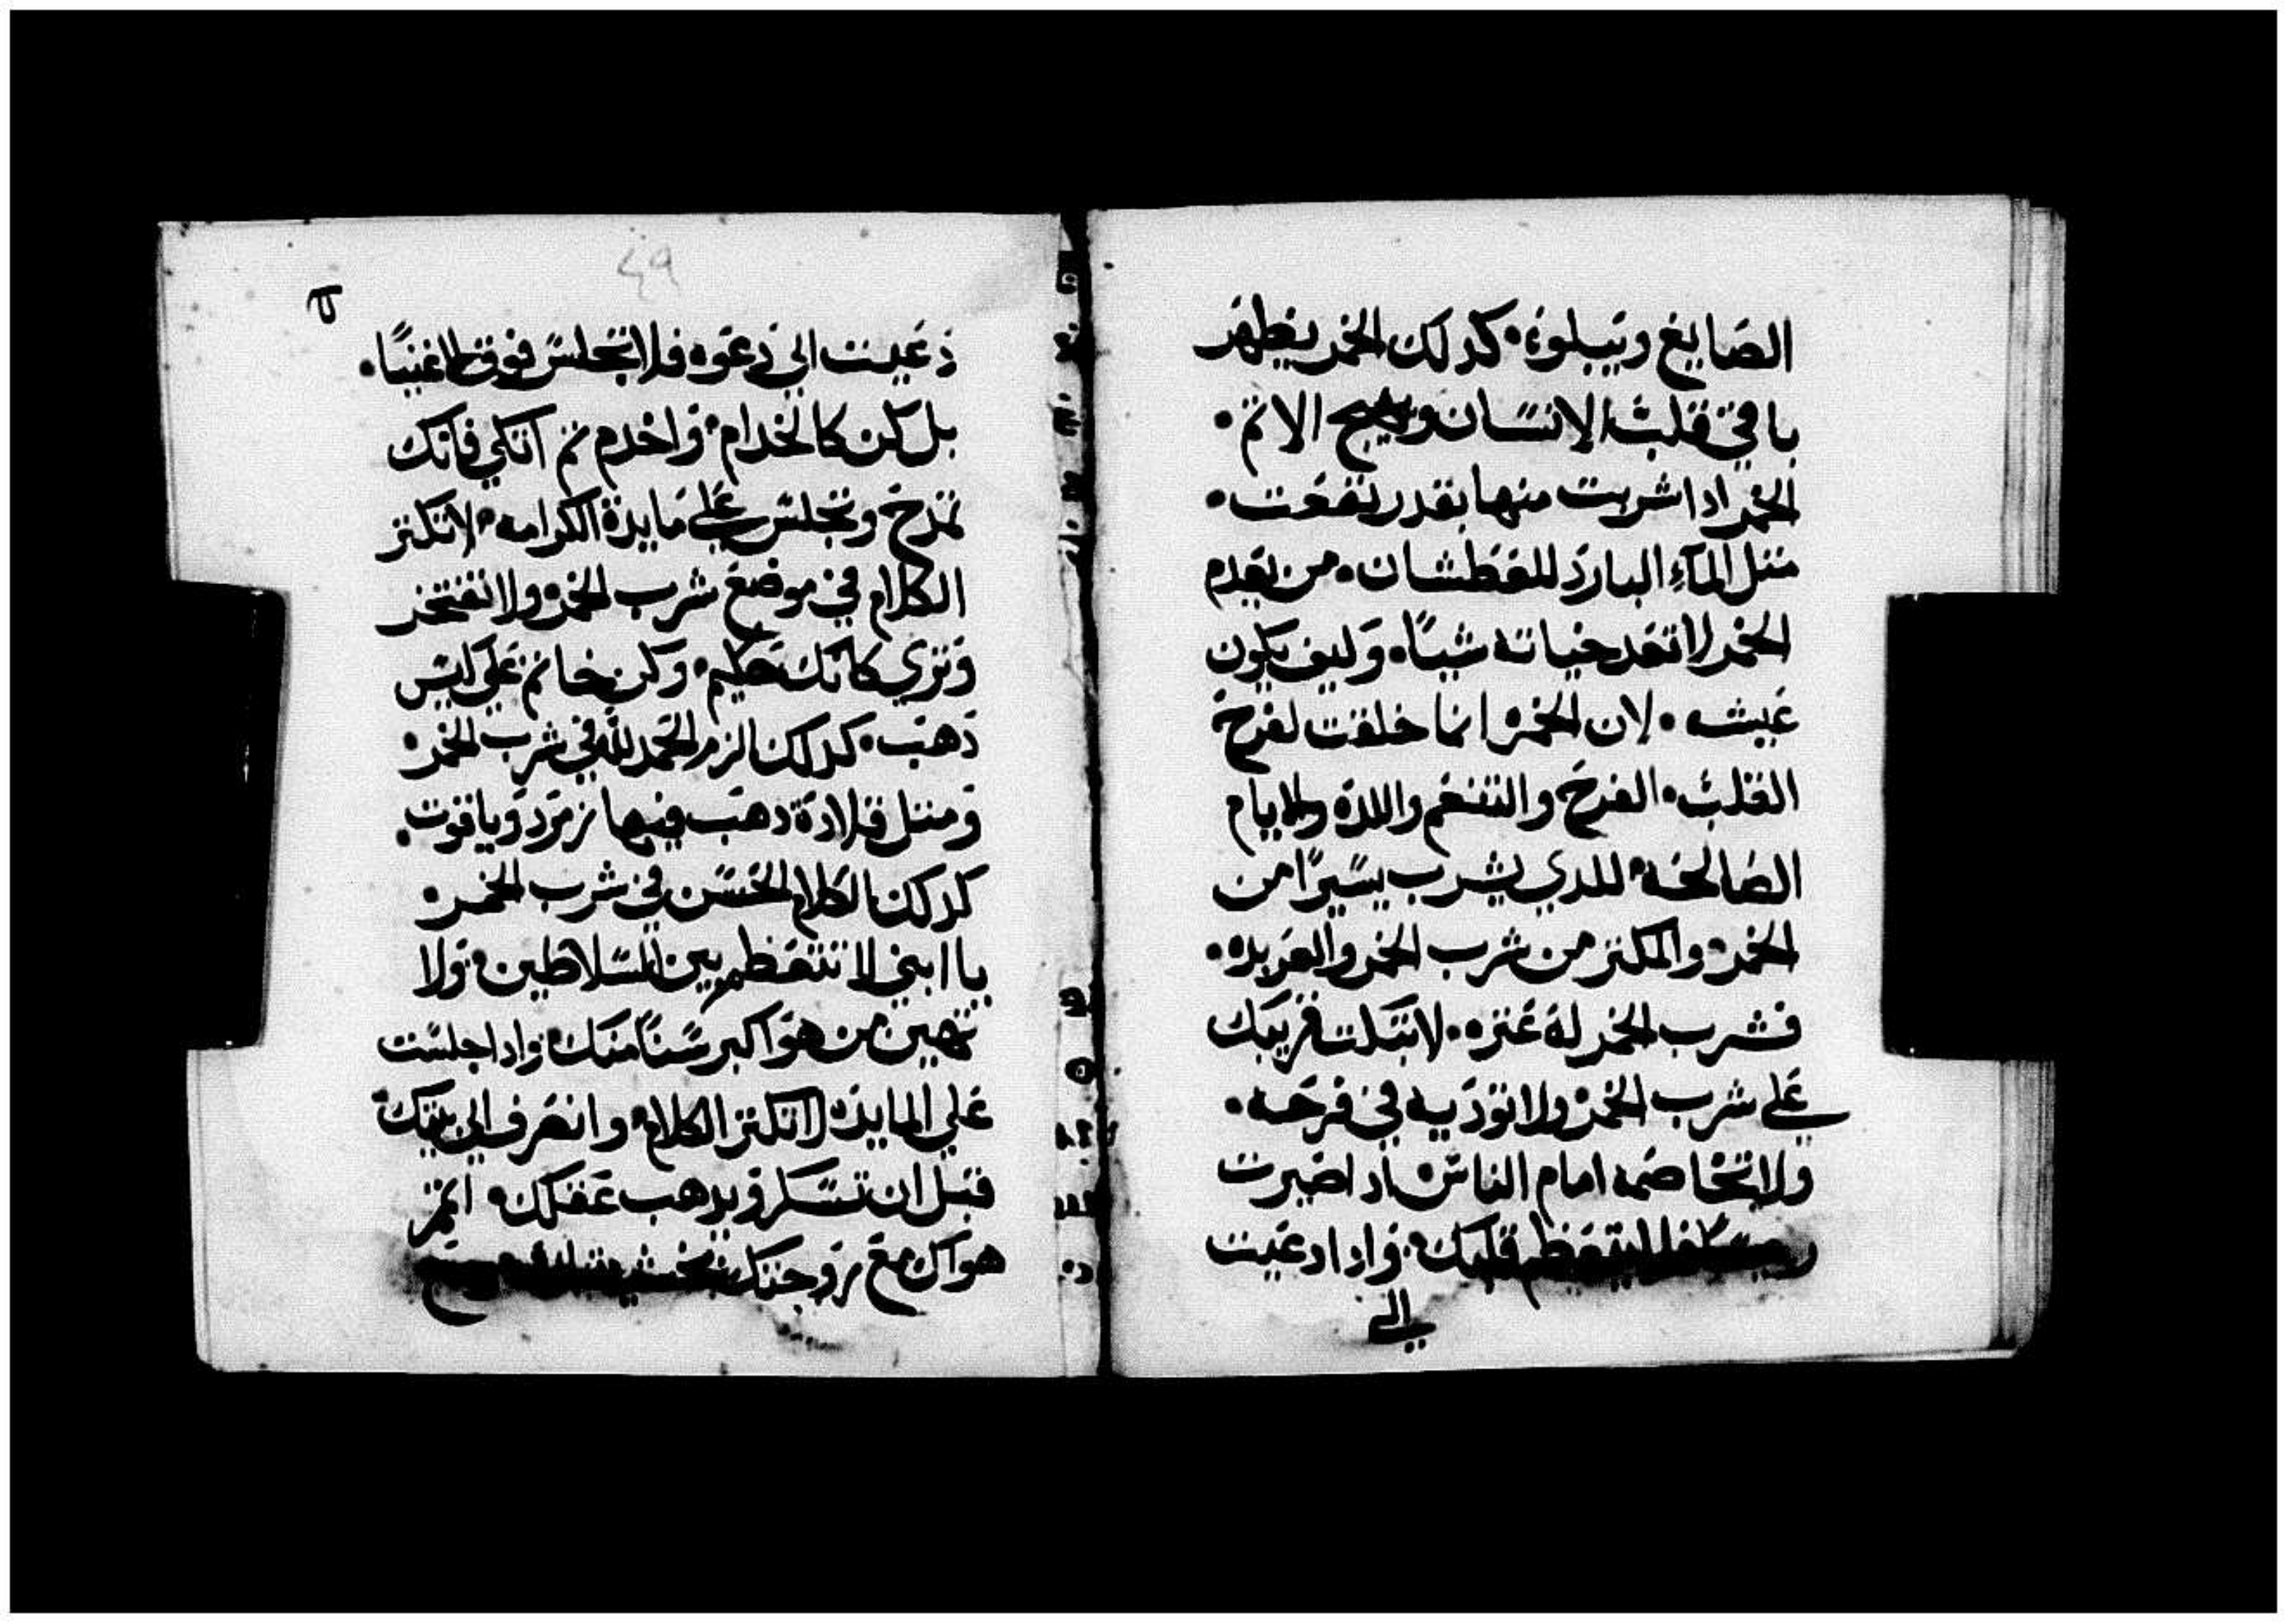 الصَايغ وتيبلوة؛ كدلك الخمر يظهر
ما في قلب الانسان ويهيج الاثم.
الخمر ادا شربت منها بقدر نفعت.
مثل المآء البارد للعطشان. من يعدم
الخمر لا تعد حياته شياً. وكيف يكون
عيشه. لان الخمره انما خلقت لفرح
القلب. الفرح والتنعم واللده والايام
الصالحه للدي يشرب يسيراً من
الخمر. والمكثر من شرب الخمر والعربده.
فشرب الخمر له عثره. لا تبكت قريبك
علي شرب الخمر ولا تودييه في فرحه.
ولا تخاصمه امام الناس. ادا صيرت
فلا يتعظم قلبك. وادا دعيت
الي
٤٩
دعيت الي دعوه فلا تجلس فوق الاغنيا.
بل كن كالخدام. واخدم ثم اتكي فانك
تمدح وتجلس علي مايدة الكرامه. لا تكثر
الكلام في موضع شرب الخمر ولا تفتخر
وتري كانك حكيم. وكن خاتم علي كيس
دهب. كدلك الزم الحمد لله في شرب الخمر.
ومثل قلادة دهب فيها زمرد وياقوت.
كدلك الكلام الحسن في شرب الخمر.
يا ابني لا تتعظم بين السلاطين. ولا
تهين من هو اكبر سناً منك. وادا جلست
علي المايده لا تكثر الكلام. وانصرف الي بيتك
قبل ان تسكر ويدهب عقلك. اتمر
هواك مع زوجتك